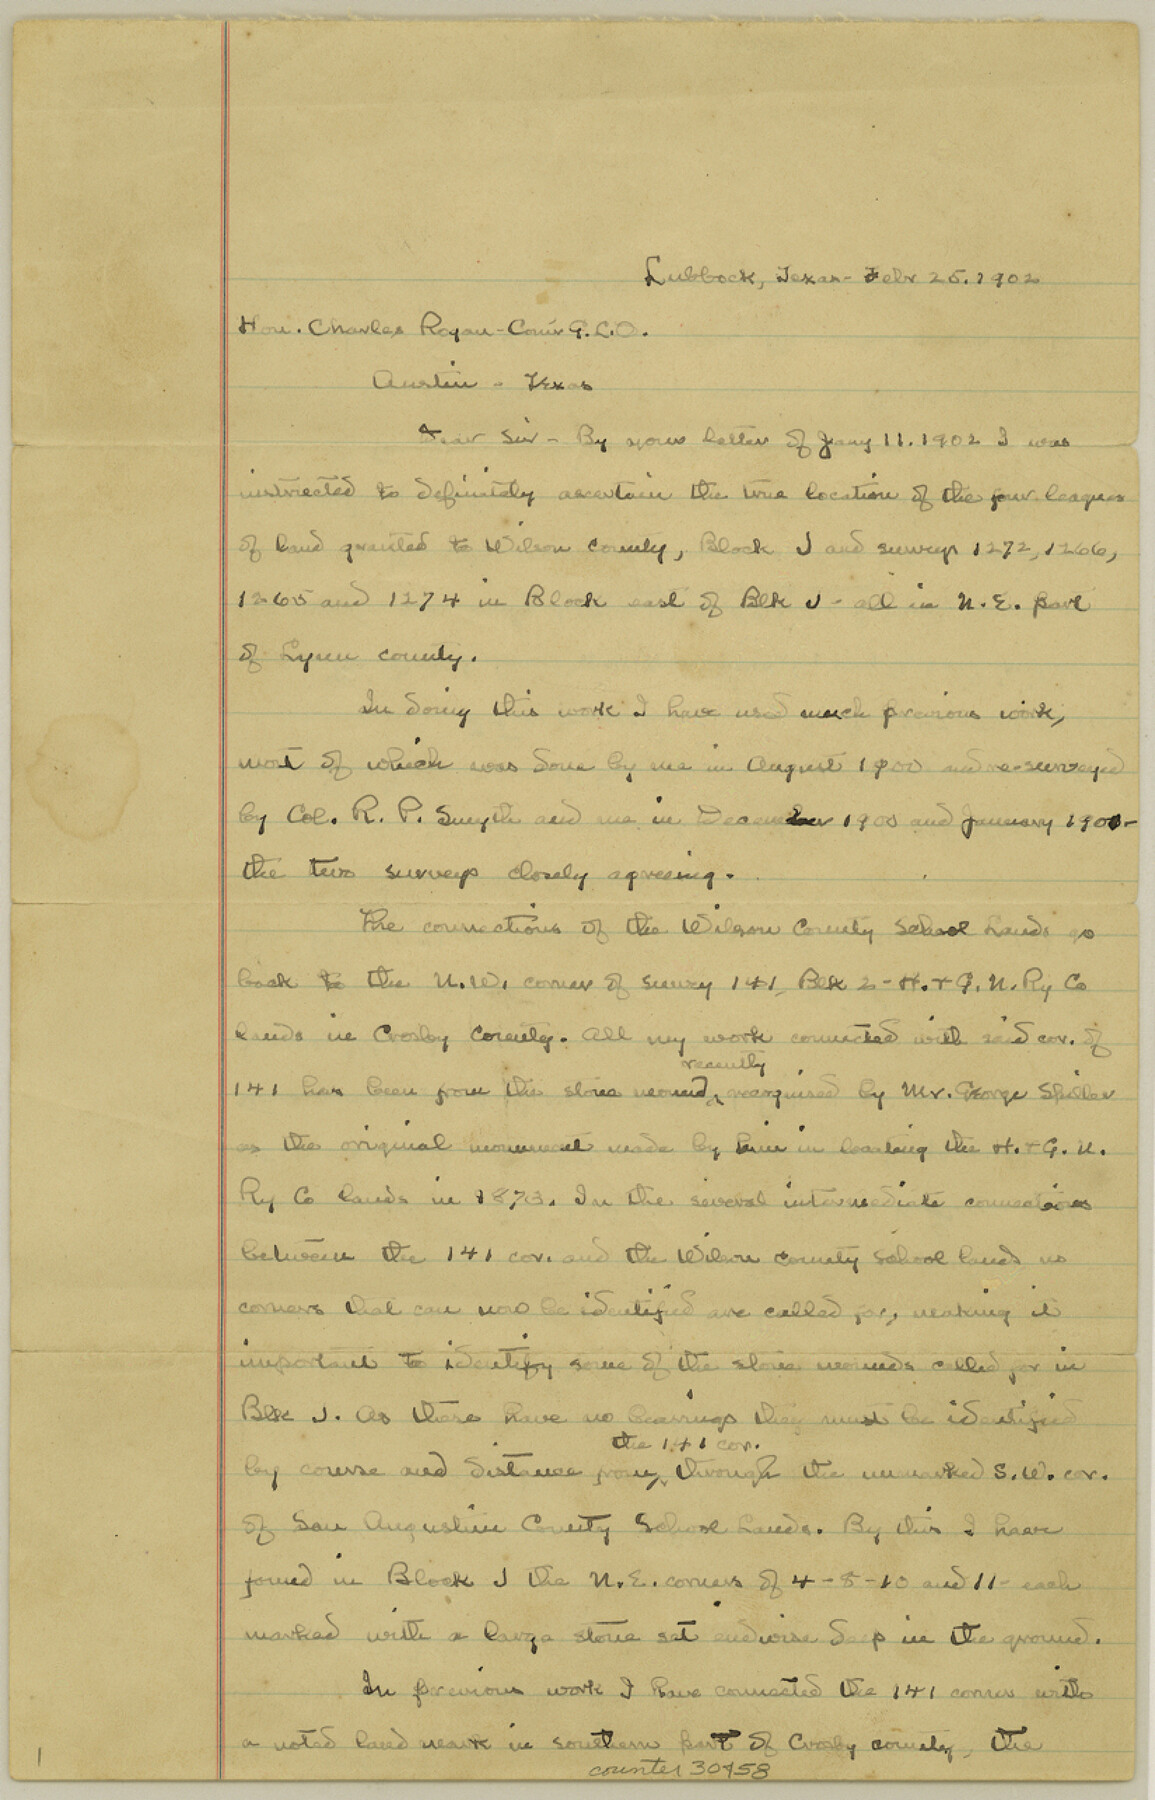 Lubbock, Texas - Febr 25. 1902
Hon. Charles Rogan - Com'r G.L.O.
Austin - Texas
Dear Sir - By your letter of Jany 11. 1902 I was
instructed to definitely ascertain the true location of the four leagues
of land granted to Wilson County, Block J and surveys 1272, 1266,
1265 and 1274 in Block east of Blk J - all in N.E. part
of Lynn county.
In doing this work I have used much previous work,
most of which was done by me in August 1900 and re-surveyed
by Col. R. P. Smyth and me in December 1900 and January 1901-
the two surveys closely agreeing.
The connections of the Wilson County School Lands go
back to the N.W. corner of survey 141, Blk 2 - H. & G. N. Ry Co
lands in Crosby County. All my work connected with said cor. of
recently
141 has been from the stone mound, recognised by Mr. George Spiller
as the original monument made by him in locating the H. & G. N.
Ry Co lands in 1873. In the several intermediate connections
between the 141 cor. and the Wilson county school lands no
corners that can now be identified are called for, making it
important to identify some of the stone mounds called for in
Blk J. As these have no bearings they must be identified
the 141 cor.
by course and distance from, through the unmarked S.W. cor.
of San Augustine County School Lands. By this I have
found in Block J the N.E. corners of 4 - 8 - 10 and 11 - each
marked with a large stone set endwise deep in the ground.
In previous work I have connected the 141 corner with
a noted land mark in southern part of Crosby county, the
counter 30458
1